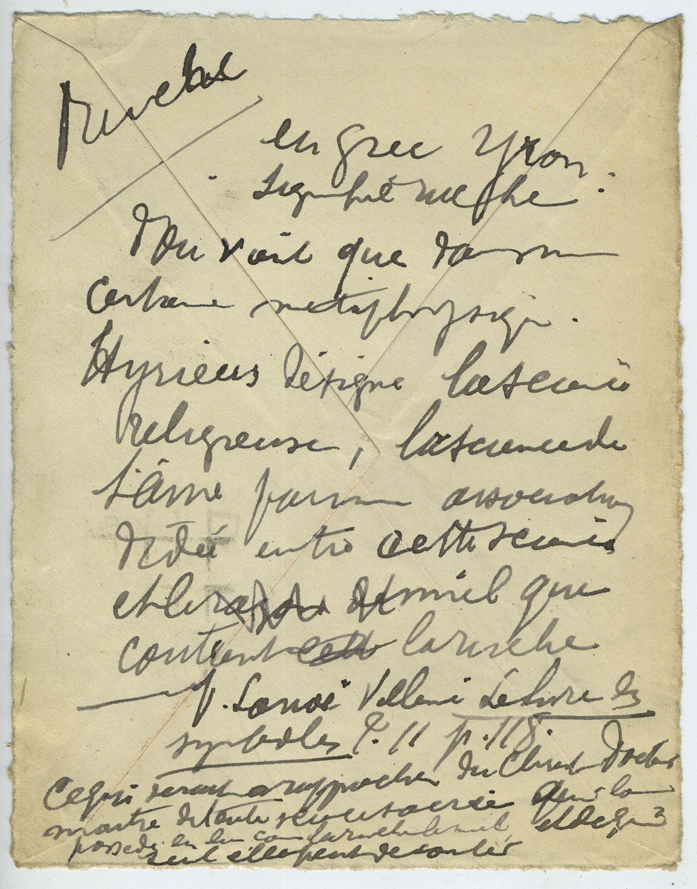 en grec Yron
signifie ruche.
D'où vient que dans une
certaine métaphysique.
Hyrieus désigne la science
religieuse, la science de
l'âme par une association
d'idée entre cette science
et le miel que
contient la ruche
Lanoë Villène Le livre des
symboles T. II p. 118.
Ce qui serait à rapprocher du Christ Docteur
maître de toute science sacrée
possède en lui comme la ruche le miel et de qui
seul elle peut